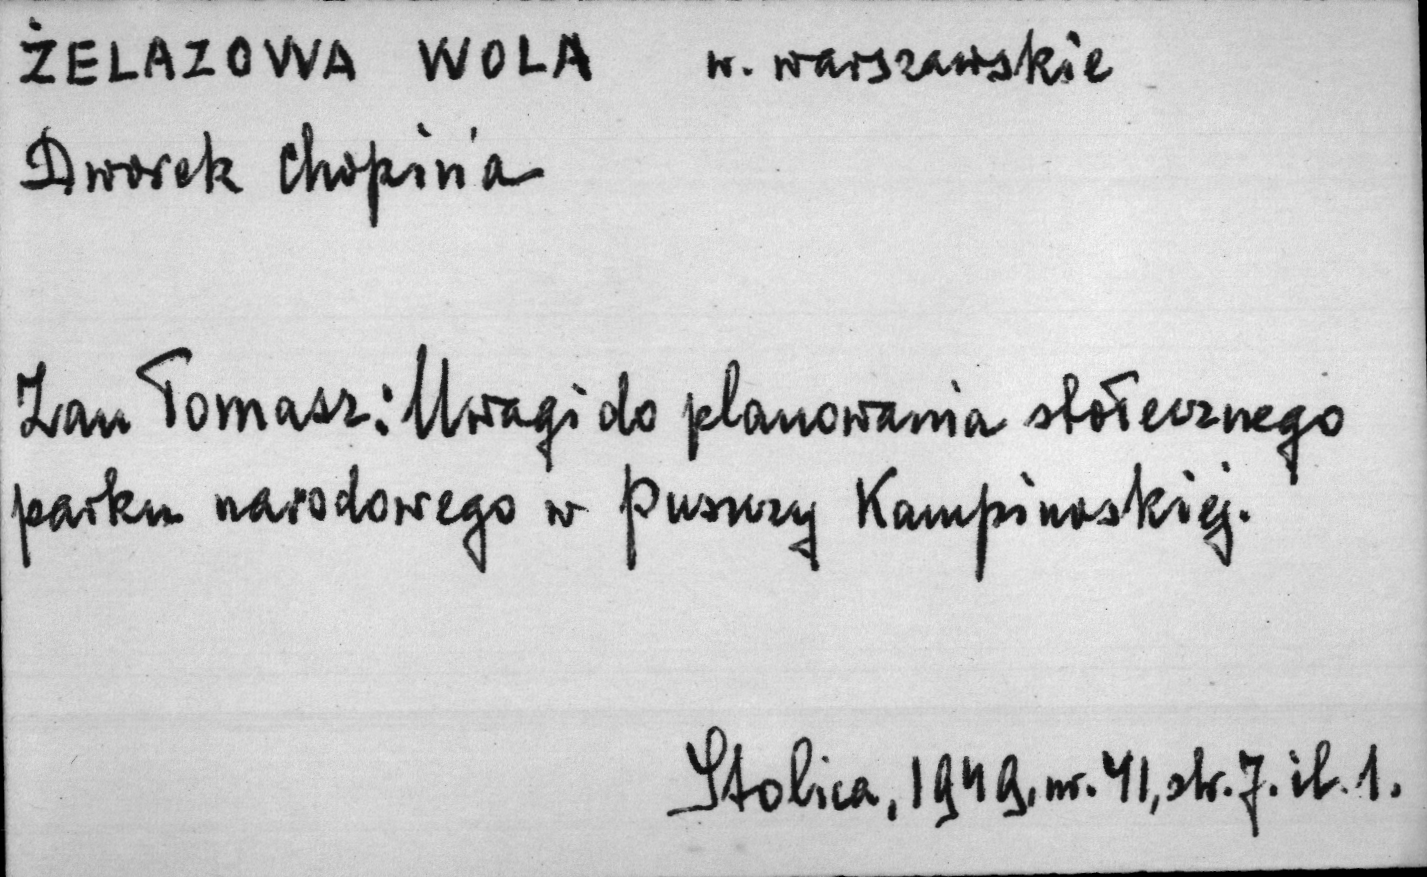 ŻELAZOWA WOLA w. warszawskie
Dworek Chopin'a
Zan Tomasz: Uwagi do planowania stołecznego
parku narodowego w Puszczy Kampinoskiej.
Stolica, 1949, nr. 41, str. 7. il. 1.